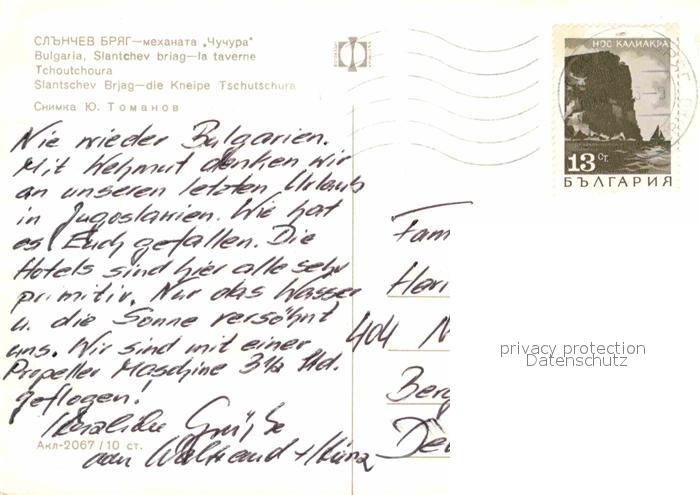 СЛЪНЧЕВ БРЯГ—механата „Чучура"
Bulgaria, Slantchev briag—la taverne
Tchoutchoura
Slantschev Brjag—die Kneipe Tschutschura
Снимка Ю. Томанов
НОС КАЛИАКРА
13 СТ.
БЪЛГАРИЯ
Nie wieder Bulgarien.
Mit Wehmut denken wir
an unseren letzten Urlaub
in Jugoslawien. Wie hat
es Euch gefallen. Die
Hotels sind hier alle sehr
primitiv. Nur das Wasser
u. die Sonne versöhnt
uns. Wir sind mit einer
Propeller Maschine 3½ Std.
geflogen!
Herzliche Grüße
von Waltraud + Heinz
Акл-2067/10 ст.
Fam
404 N
Berg
privacy protection
Datenschutz